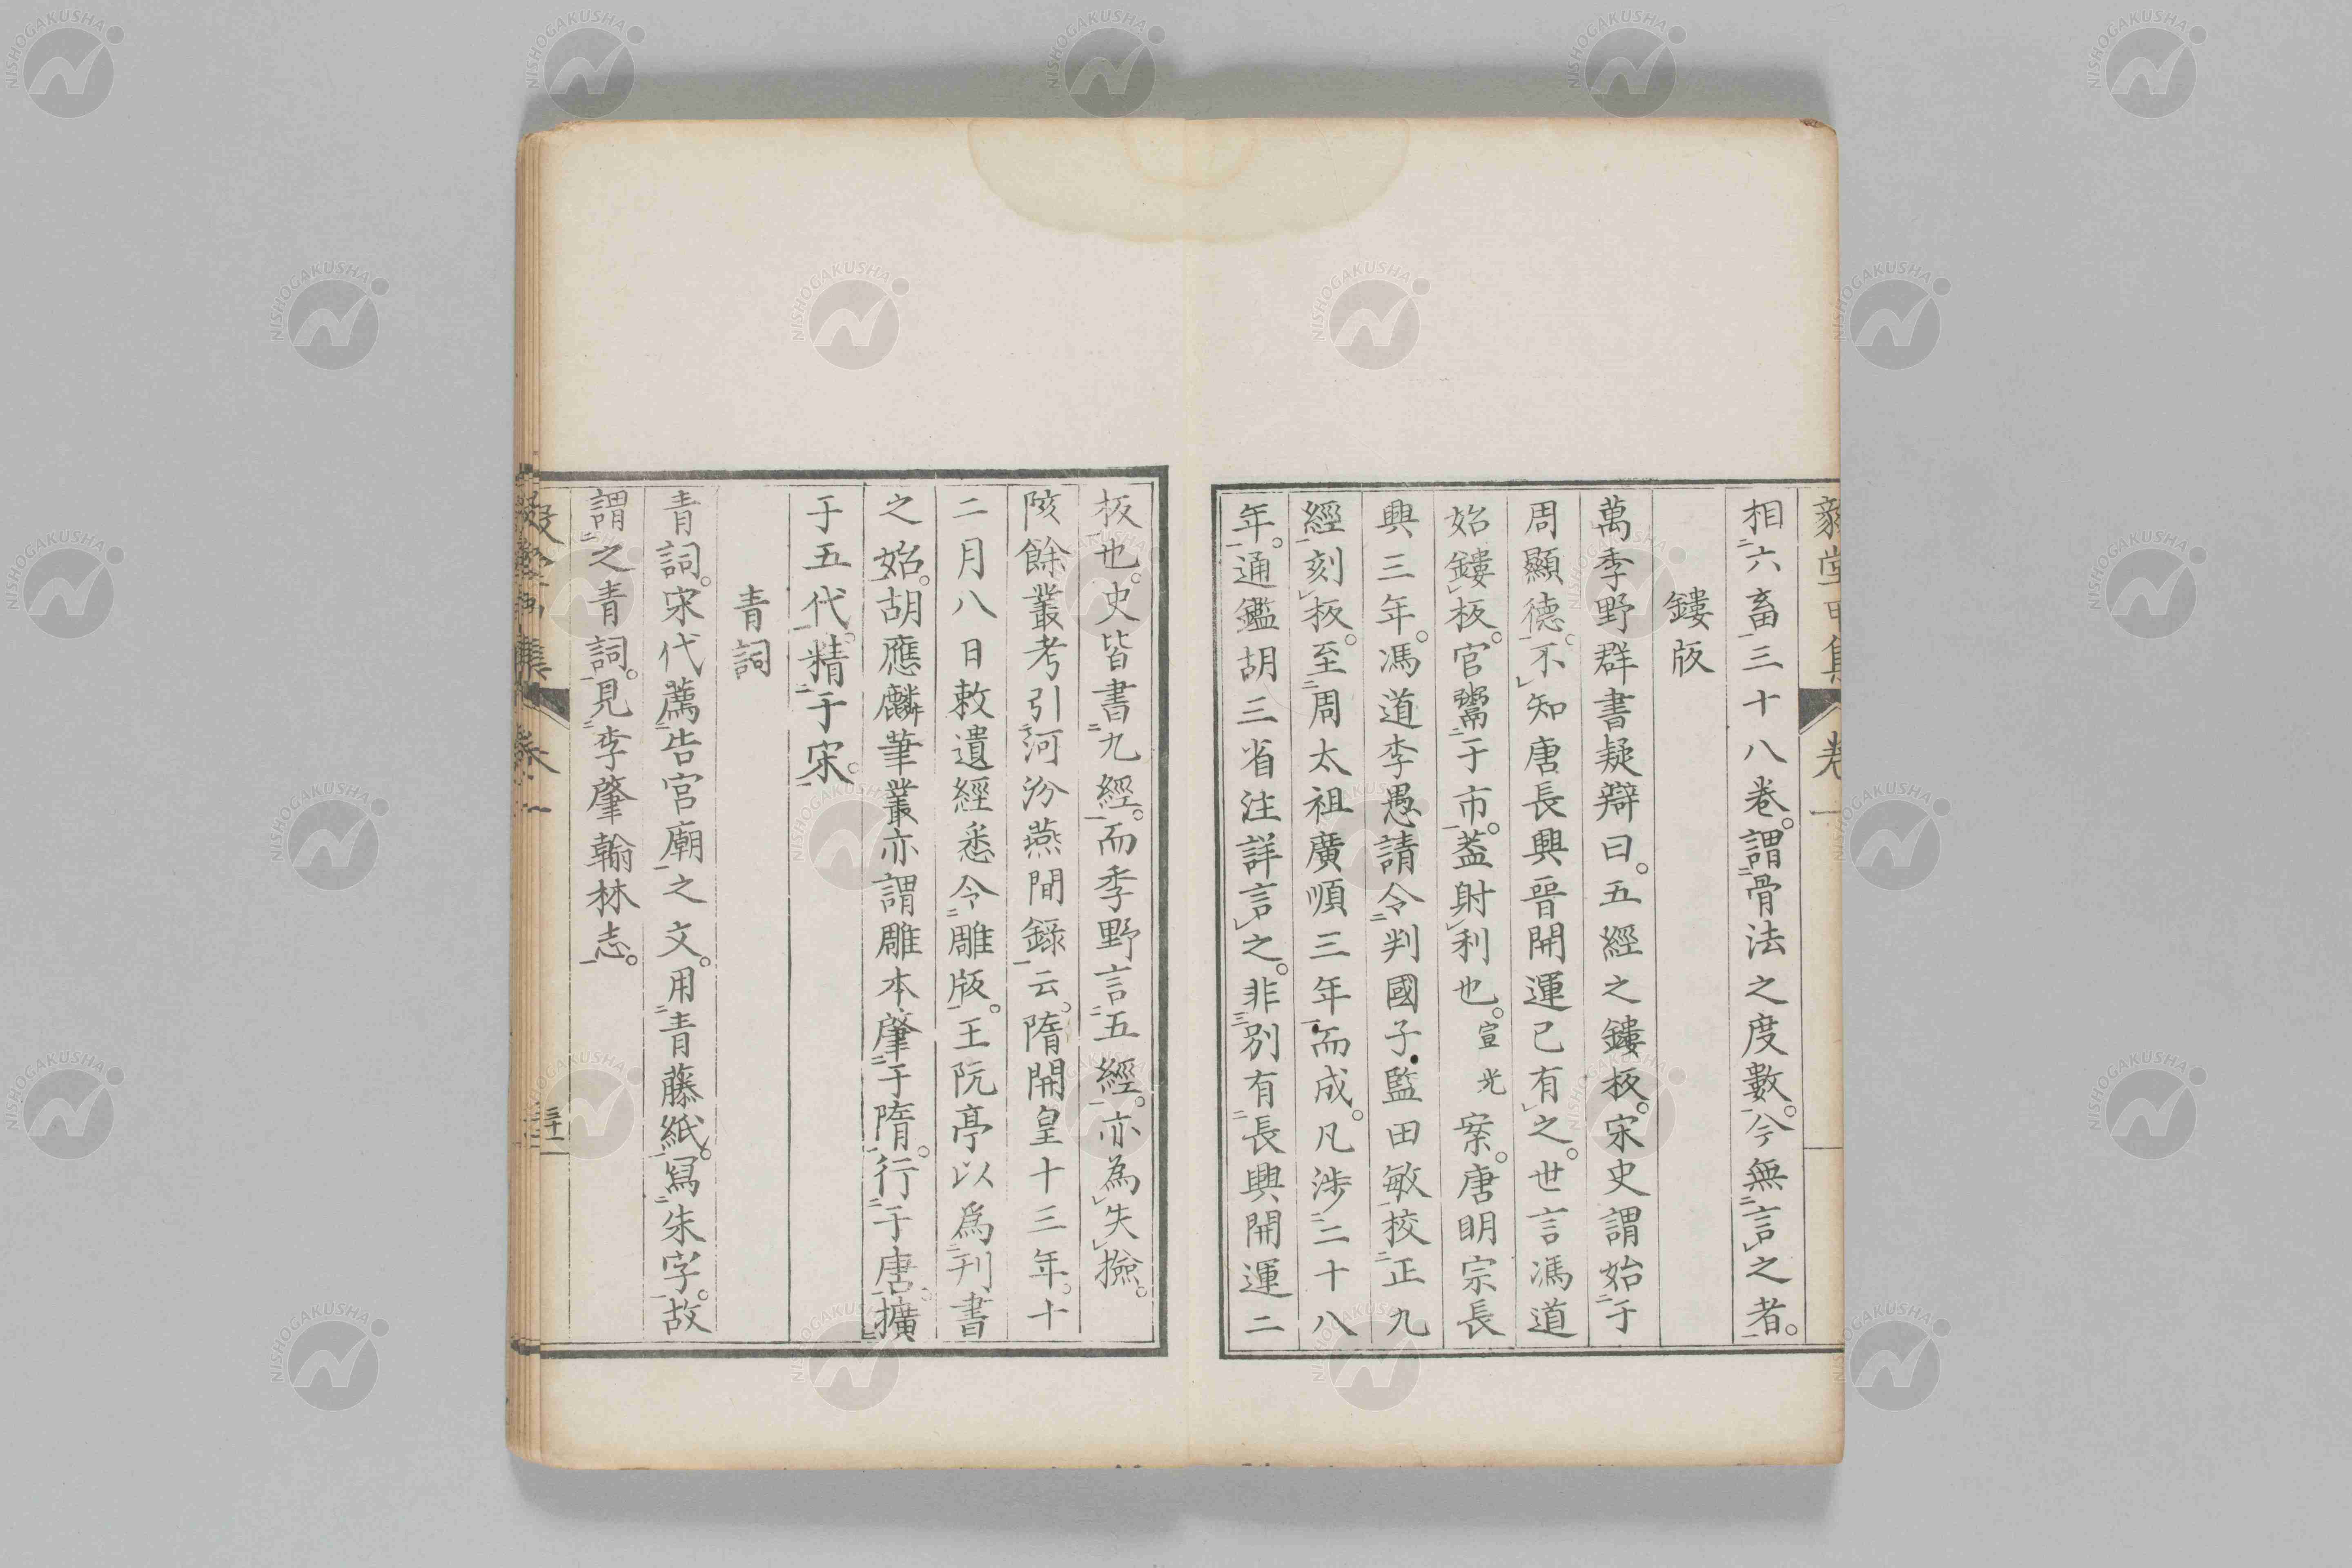 相六畜三十八卷。謂骨法之度數。今無言之者。
鏤版
萬季野群書疑辯曰。五經之鏤板。宋史謂始于
周顯德。不知唐長興晉開運已有之。世言馮道
始鏤板。官鬻于市。葢射利也。宣光案。唐明宗長
興三年。馮道李愚請令判國子監田敏校正九
經刻板。至周太祖廣順三年而成。凡涉二十八
年。通鑑胡三省注詳言之。非別有長興開運二
板也。史皆書九經。而季野言五經。亦為失撿。
陔餘叢考引河汾燕間錄云。隋開皇十三年。十
二月八日敕遺經悉令雕版。王阮亭以爲刊書
之始。胡應麟筆叢亦謂雕本肇于隋。行于唐。擴
于五代。精于宋。
青詞
青詞。宋代薦告宮廟之文。用青藤紙。寫朱字。故
謂之青詞。見李肇翰林志。
卷一
NISHOGAKUSHA